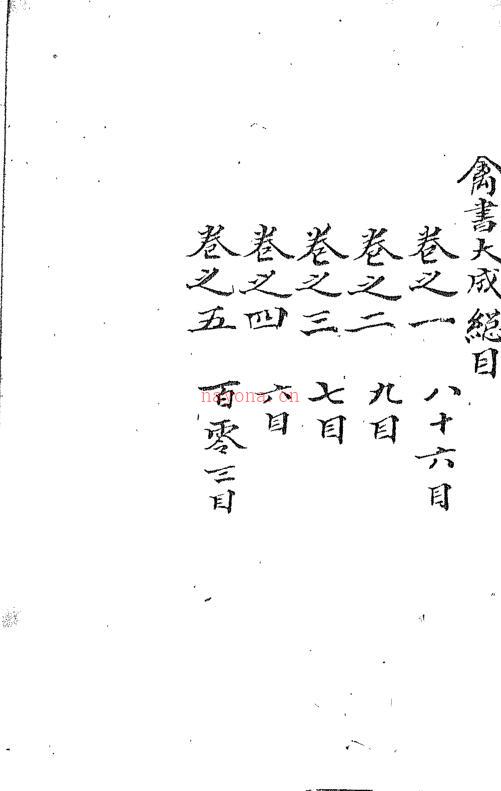 禽書大成總目
卷之一 八十六目
卷之二 九目
卷之三 七目
卷之四 六目
卷之五 百零三目
nayona.cn